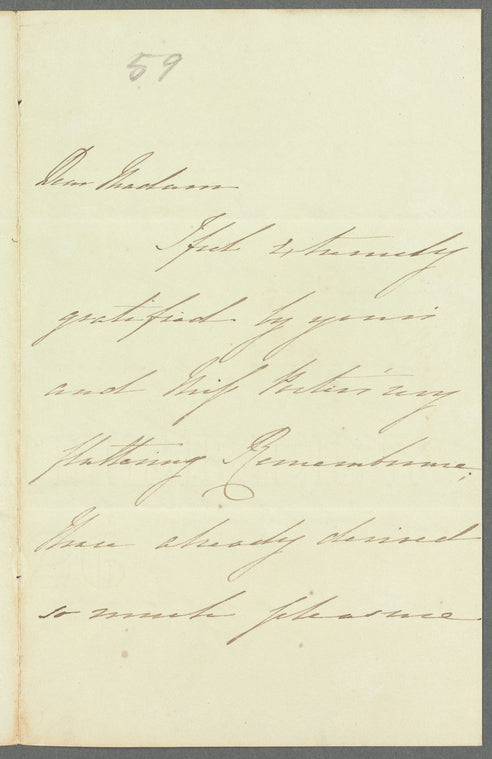 59
Dear Madam
I feel extremely
gratified by yours
and Miss Porter's very
flattering Remembrance;
I have already derived
so much pleasure